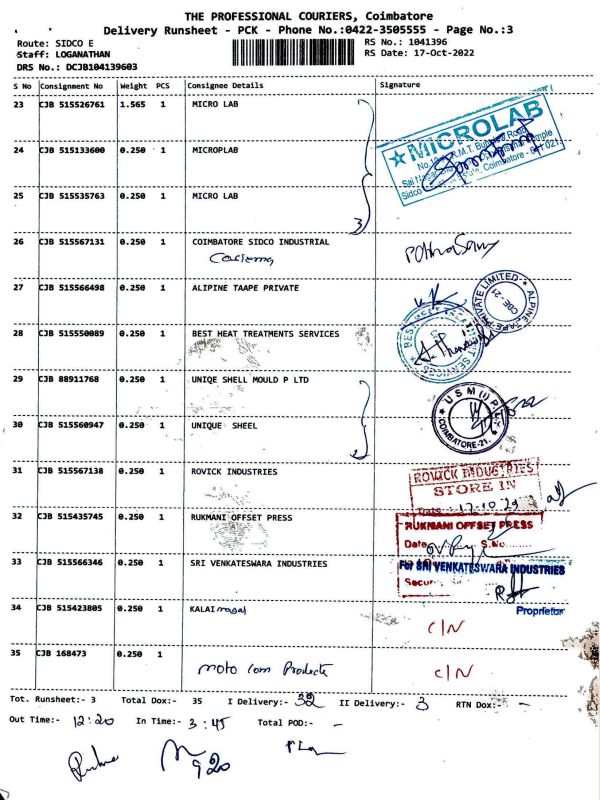 THE PROFESSIONAL COURIERS, Coimbatore
Delivery Runsheet - PCK - Phone No.:0422-3505555 - Page No.:3
Route: SIDCO E RS No.: 1041396
Staff: LOGANATHAN RS Date: 17-Oct-2022
DRS No.: DCJB104139603
S No Consignment No Weight PCS Consignee Details Signature
23 CJB 515526761 1.565 1 MICRO LAB
MICROLAB
24 CJB 515133600 0.250 1 MICROPLAB
25 CJB 515535763 0.250 1 MICRO LAB
Coimbatore - 641 021
3
26 CJB 515567131 0.250 1 COIMBATORE SIDCO INDUSTRIAL
27 CJB 515566498 0.250 1 ALIPINE TAAPE PRIVATE
ALPINE TAPE PRIVATE LIMITED
CBE-21
28 CJB 515550089 0.250 1 BEST HEAT TREATMENTS SERVICES
BEST HEAT TREATMENT SERVICES
29 CJB 88911768 0.250 1 UNIQE SHELL MOULD P LTD
U S M (I) P
COIMBATORE-21.
30 CJB 515560947 0.250 1 UNIQUE SHEEL
2
31 CJB 515567138 0.250 1 ROVICK INDUSTRIES
ROVICK INDUSTRIES
STORE IN
32 CJB 515435745 0.250 1 RUKMANI OFFSET PRESS
RUKMANI OFFSET PRESS
Date S.No
33 CJB 515566346 0.250 1 SRI VENKATESWARA INDUSTRIES
For SRI VENKATESWARA INDUSTRIES
Proprietor
34 CJB 515423805 0.250 1 KALAI magal
C/N
35 CJB 168473 0.250 1
moto com Products C/N
Tot. Runsheet:- 3 Total Dox:- 35 I Delivery:- 32 II Delivery:- 3 RTN Dox:- -
Out Time:- 12:20 In Time:- 3:45 Total POD:- -
920